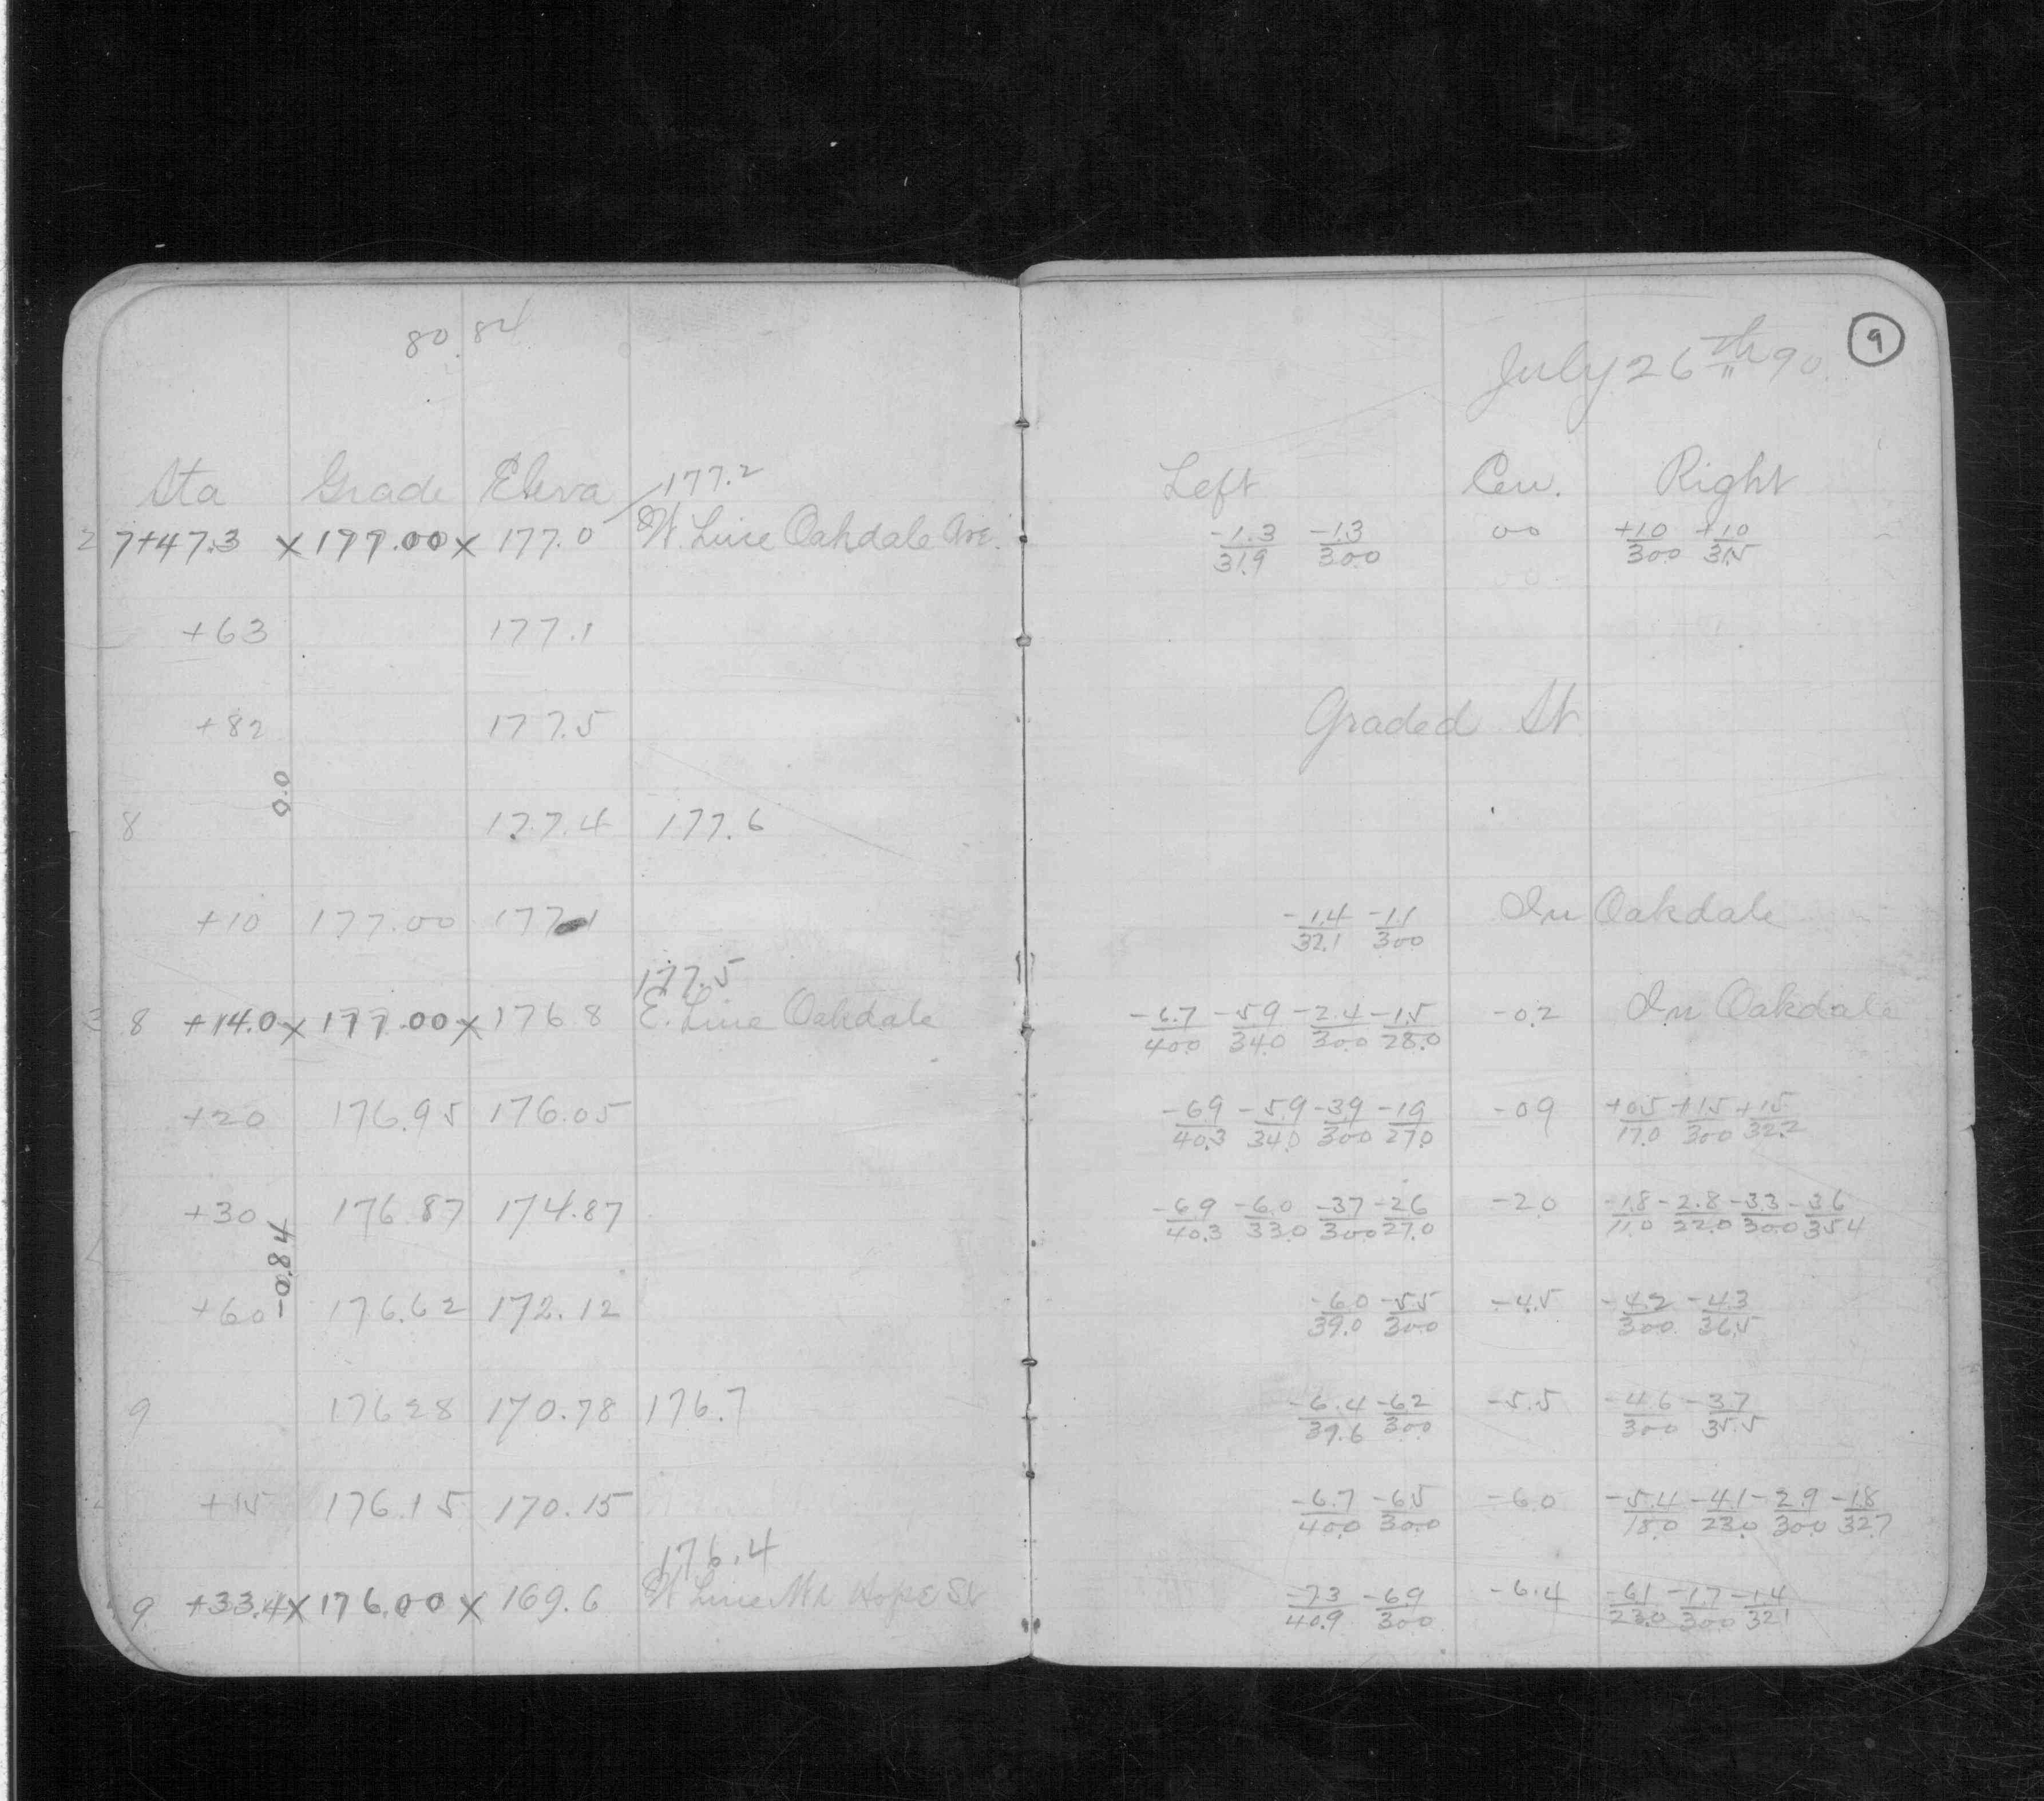 80.84
July 26th 90. 9
Sta Grade Eleva 177.2 Left Cen. Right
2 7+47.3 x 177.00 x 177.0 W. Line Oakdale Ave. -1.3/31.9 -1.3/30.0 0.0 +1.0/30.0 +1.0/31.5
+63 177.1
+82 177.5 Graded St
0.0
8 177.4 177.6
+10 177.00 177.1 -1.4/32.1 -1.1/30.0 In Oakdale
177.5
3 8 +14.0 x 177.00 x 176.8 E. Line Oakdale -6.7/40.0 -5.9/34.0 -2.4/30.0 -1.5/28.0 -0.2 In Oakdale
+20 176.95 176.05 -6.9/40.3 -5.9/34.0 -3.9/30.0 -1.9/27.0 -0.9 +0.5/17.0 +1.5/30.0 +1.5/32.2
+30 176.87 174.87 -6.9/40.3 -6.0/33.0 -3.7/30.0 -2.6/27.0 -2.0 -1.8/11.0 -2.8/22.0 -3.3/30.0 -3.6/35.4
-0.84
+60 176.62 172.12 -6.0/39.0 -5.5/30.0 -4.5 -4.2/30.0 -4.3/36.5
9 176.28 170.78 176.7 -6.4/39.6 -6.2/30.0 -5.5 -4.6/30.0 -3.7/35.5
+15 176.15 170.15 -6.7/40.0 -6.5/30.0 -6.0 -5.4/18.0 -4.1/23.0 -2.9/30.0 -1.8/32.7
176.4
9 +33.4 x 176.00 x 169.6 W Line Mt Hope St -7.3/40.9 -6.9/30.0 -6.4 -6.1/23.0 -1.7/30.0 -1.4/32.1